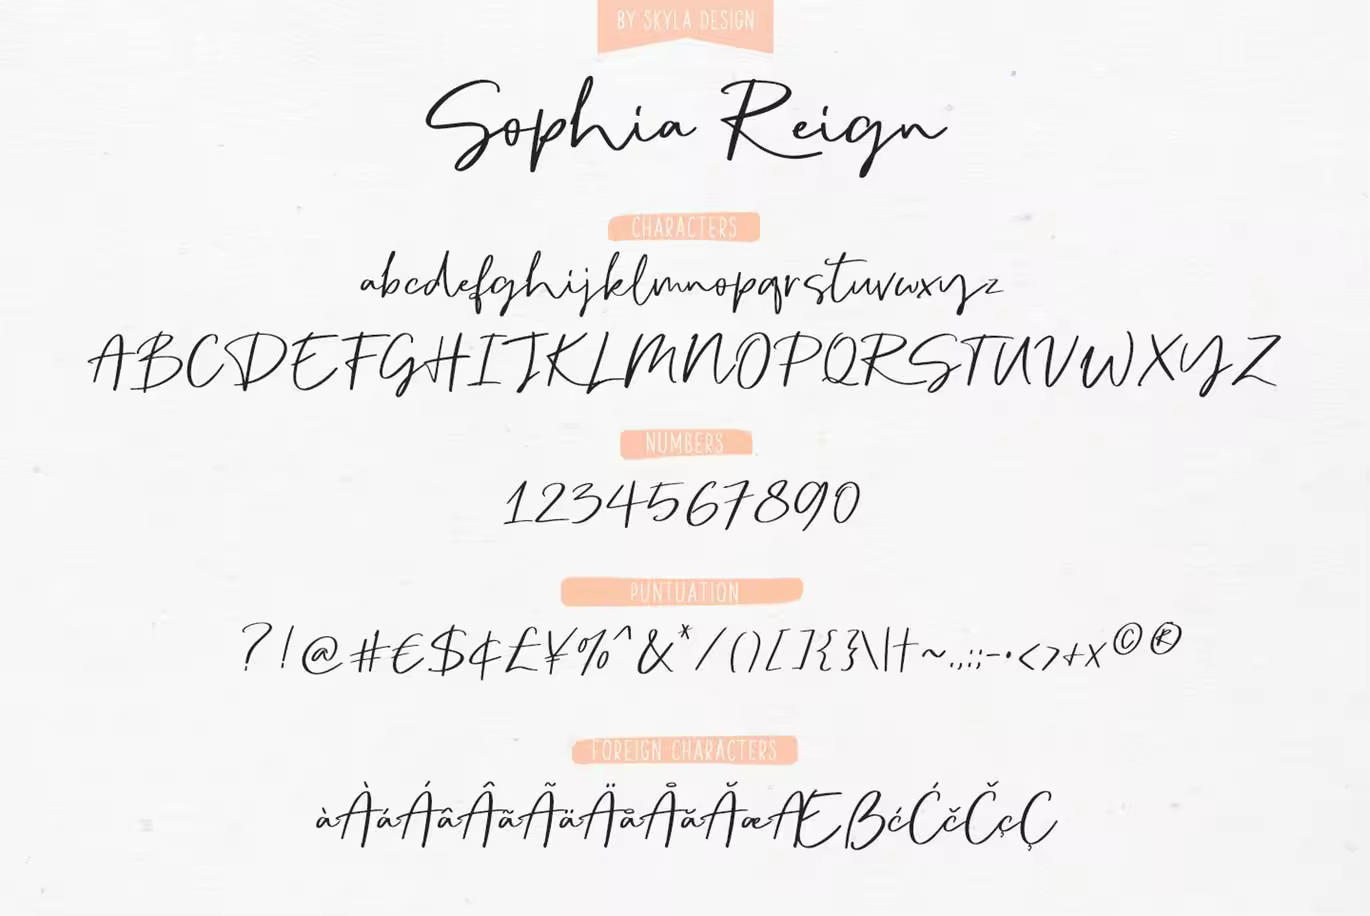 BY SKYLA DESIGN
Sophia Reign
CHARACTERS
abcdefghijklmnopqrstuvwxyz
ABCDEFGHIJKLMNOPQRSTUVWXYZ
NUMBERS
1234567890
PUNTUATION
?!@#€$¢£¥%^&*/()[]{}\|†~.,:;-·<>+x©®
FOREIGN CHARACTERS
àÀáÁâÂãÃäÄåÅăĂæÆßćĆčČçÇ